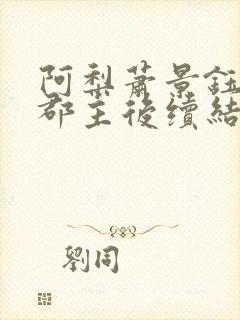 阿梨蕭景鈺
郡主後續結
劉同